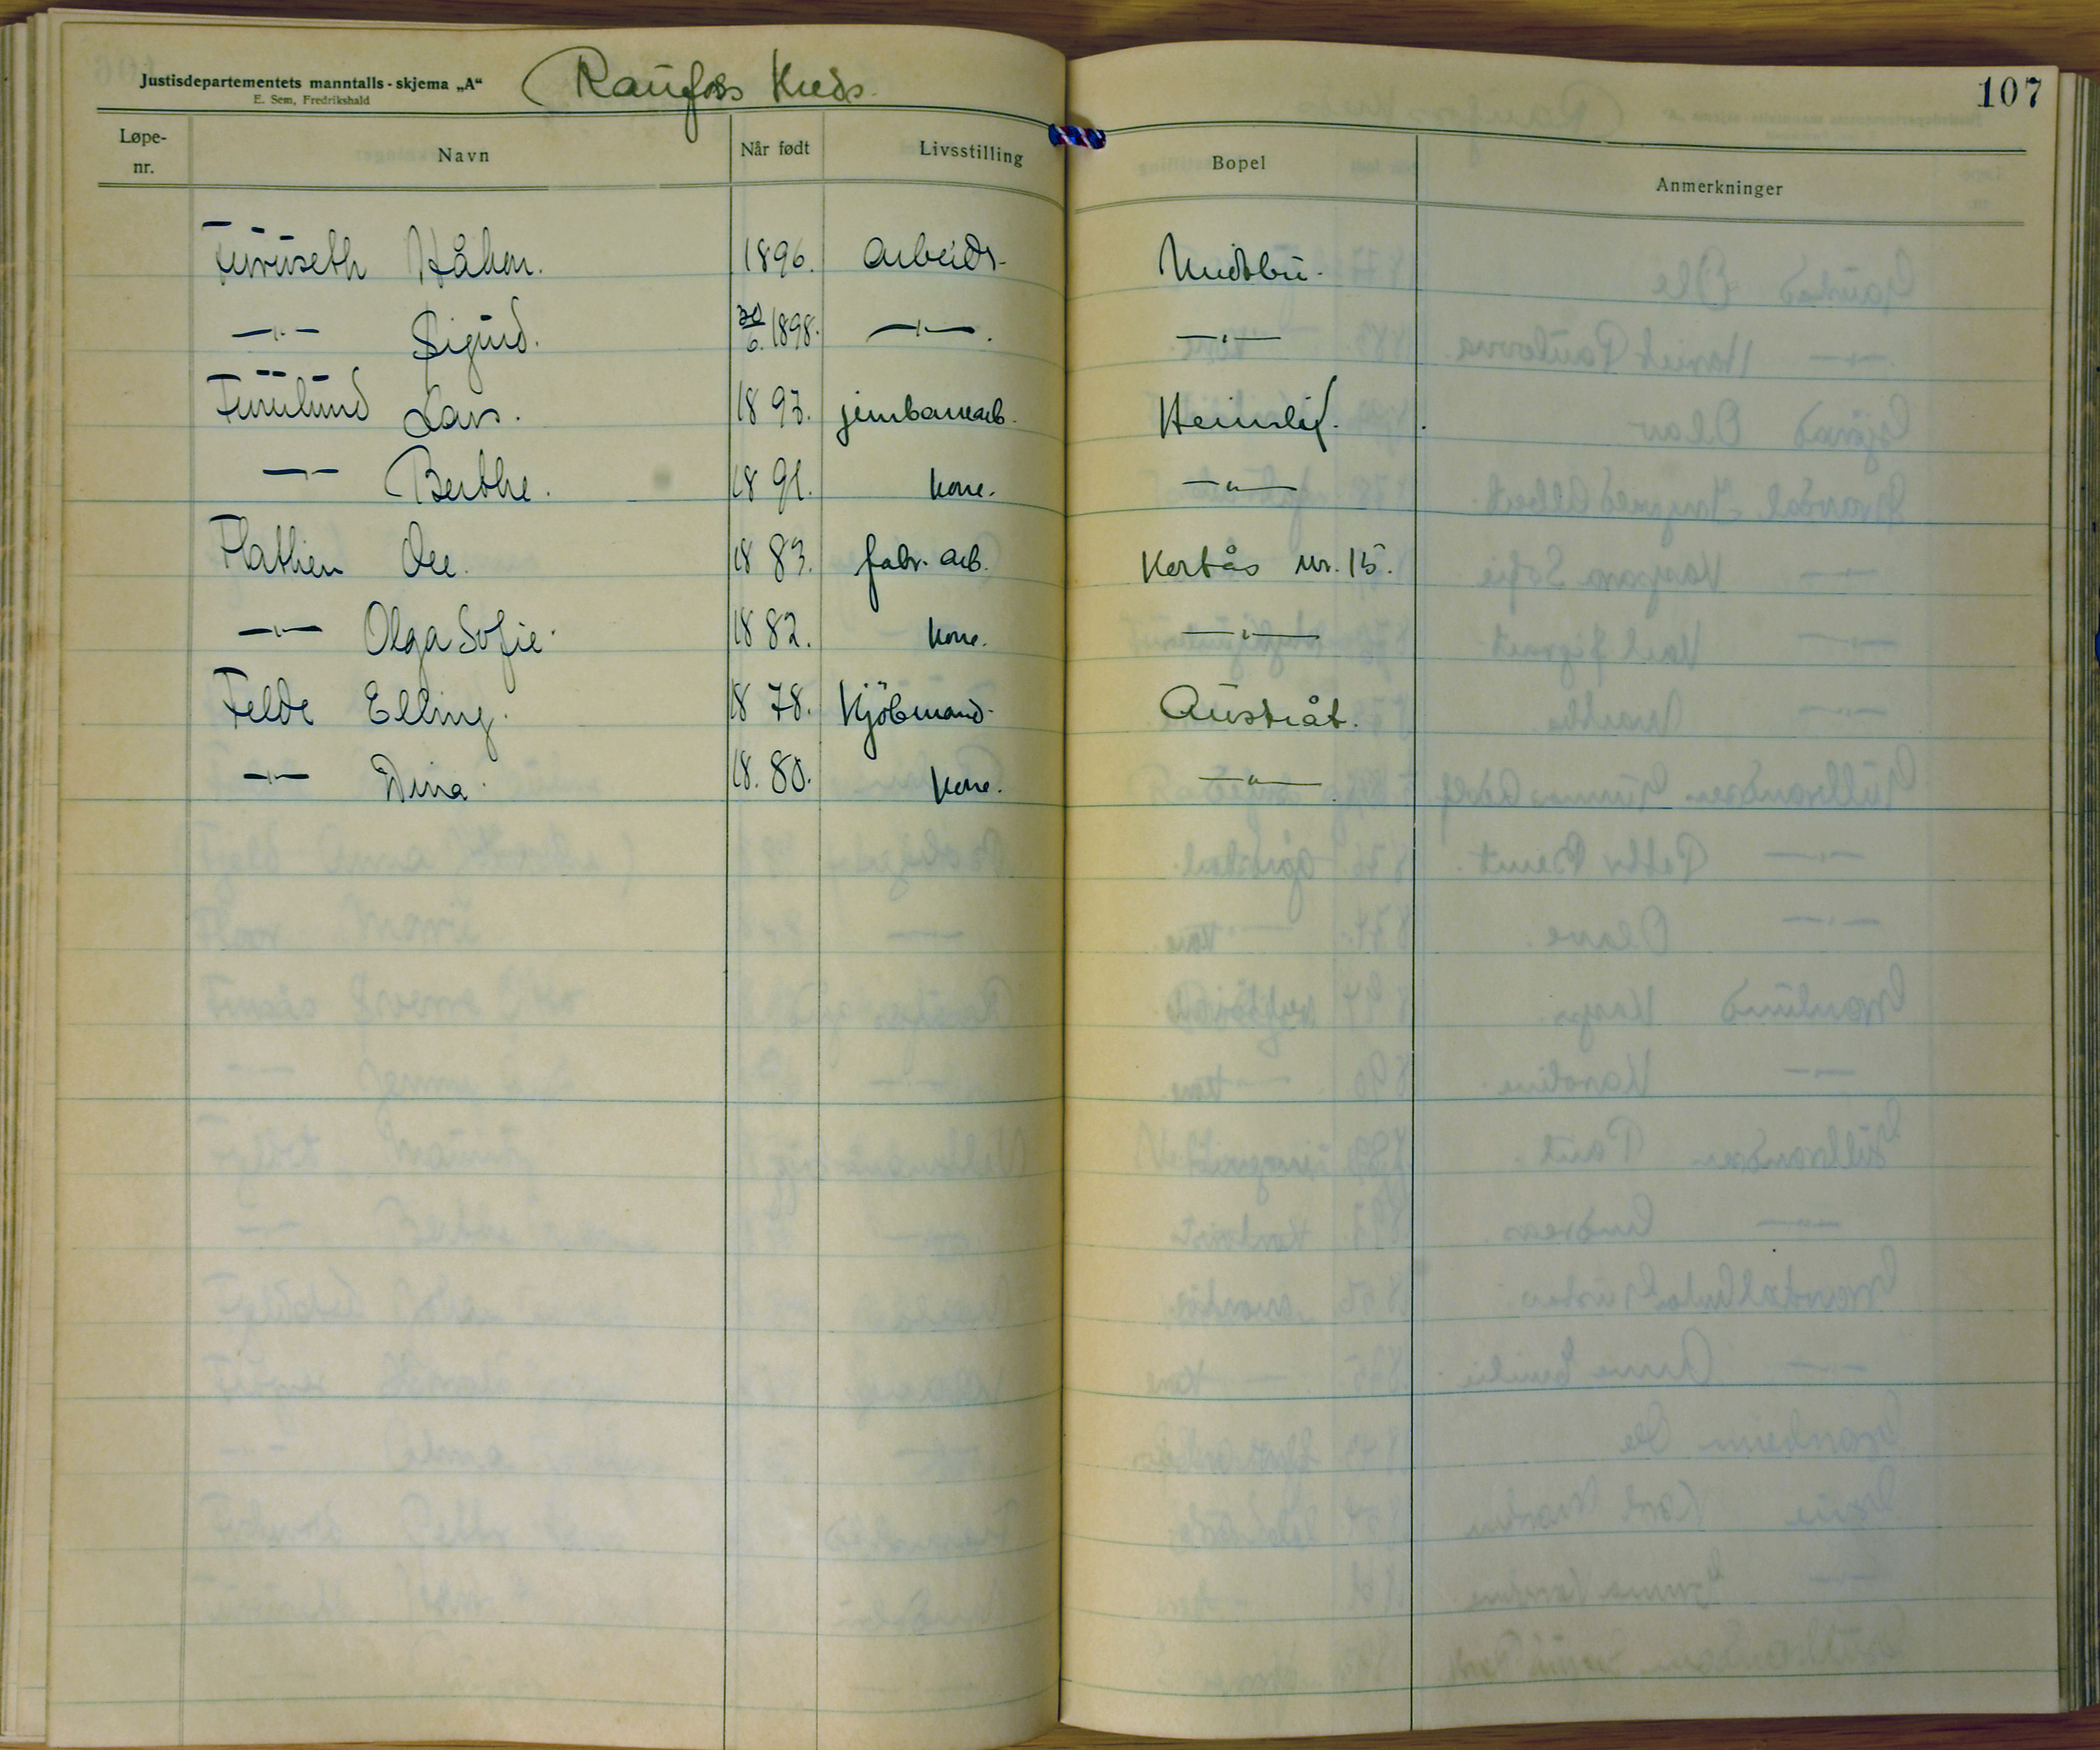 Justisdepartementets manntalls-skjema „A“
E. Sem, Fredrikshald
Raufoss Kreds.
107
Løpe-nr. Navn Når født Livsstilling Bopel Anmerkninger
Furuseth Håkon. 1896. Arbeidr. Midtbü.
—"— Sigurd. 30/6. 1898. —"—. —"—
Furulund Lars. 1897. jernbanearb. Heimlid.
—"— Berthe. 1891. kone. —"—
Flathen Ole. 1883. fabr. arb. Kortås nr. 15.
—"— Olga Sofie. 1882. kone. —"—
Felde Elling. 1878. Kjöbmand. Austråt.
—"— Dina. 18.80. kone. —"—